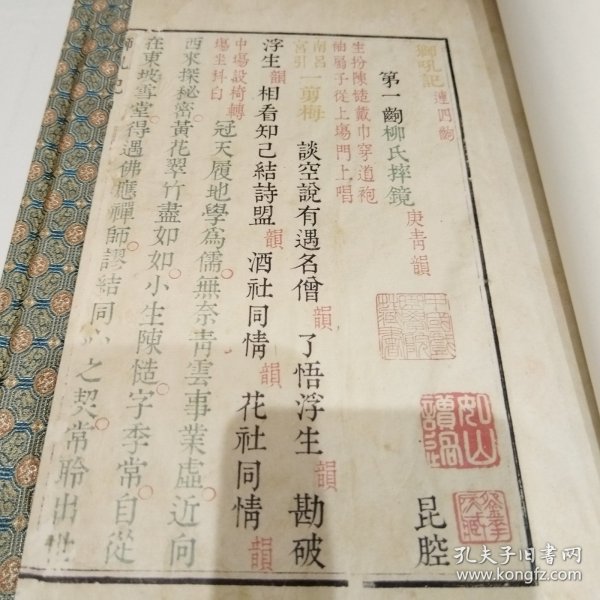 獅吼記 連四齣
昆腔
第一齣柳氏摔鏡 庚青韻
生扮陳慥戴巾穿道袍
袖扇子從上場門上唱
南呂宮引 一剪梅 談空說有遇名僧韻了悟浮生韻勘破
浮生韻相看知己結詩盟韻酒社同情韻花社同情韻
中場設椅轉場坐科白 冠天履地學為儒。無奈青雲事業虛。近向
西來探秘密。黃花翠竹盡如如。小生陳慥。字季常。自從
在東坡雪堂。得遇佛應禪師。謬結同心之契。常聆出世
獅吼記
如山讀過
孔夫子旧书网
www.kongfz.com